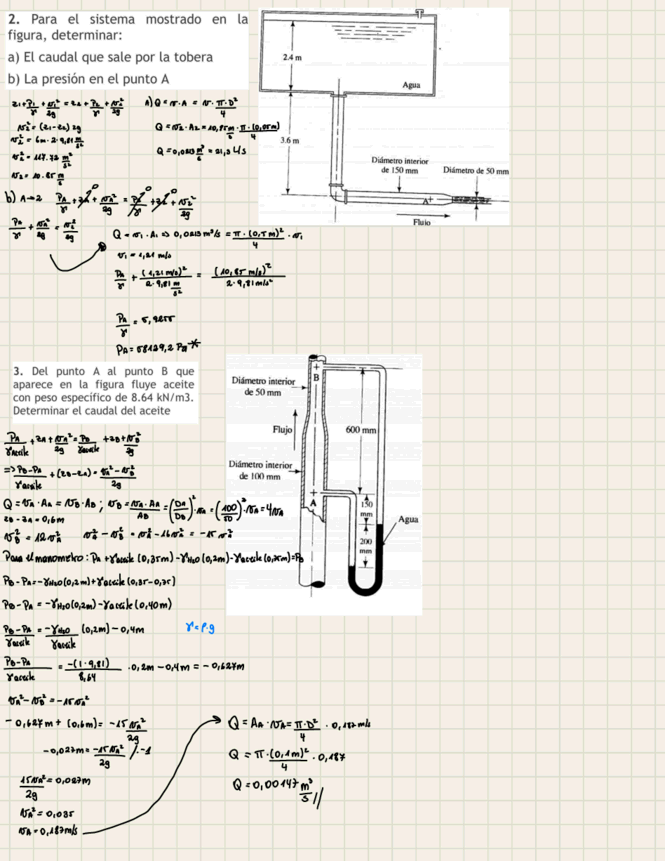 2. Para el sistema mostrado en la
figura, determinar:
a) El caudal que sale por la tobera
b) La presión en el punto A
2.4 m
Agua
3.6 m
Diámetro interior
de 150 mm
Diámetro de 50 mm
A+
Flujo
z1+P1/γ+v1²/2g = z2+P2/γ+v2²/2g
v2² = (z1-z2) 2g
v2² = 6m · 2 · 9,81 m/s²
v2² = 117.72 m²/s²
v2 = 10.85 m/s
A) Q = v · A = v · π·D²/4
Q = v2 · A2 = 10,85 m/s · π · (0,05m)²/4
Q = 0,0213 m³/s = 21,3 L/s
b) A→2 PA/γ + zA⁰ + vA²/2g = P2⁰/γ + z2⁰ + v2²/2g
PA/γ + vA²/2g = v2²/2g
v1 = 1,21 m/s
PA/γ + (1,21 m/s)²/2·9,81 m/s² = (10,85 m/s)²/2·9,81 m/s²
PA/γ = 5,9255
PA = 58129,2 Pa
3. Del punto A al punto B que
aparece en la figura fluye aceite
con peso específico de 8.64 kN/m3.
Determinar el caudal del aceite
Diámetro interior
de 50 mm
B
Flujo
600 mm
Diámetro interior
de 100 mm
A
150
mm
Agua
200
mm
PA/γaceite + zA + vA²/2g = PB/γaceite + zB + vB²/2g
=> PB-PA/γaceite + (zB-zA) = vA²-vB²/2g
Q = vA · AA = vB · AB ; vB = vA·AA/AB = (DA/DB)² · vA = (100/50)² · vA = 4vA
zB - zA = 0,6m
vA² - vB² = vA² - 16vA² = -15 vA²
PB - PA = -γH2O (0,2m) - γaceite (0,40m)
PB-PA/γaceite = -γH2O/γaceite (0,2m) - 0,4m
γ = ρ·g
PB-PA/γaceite = -(1·9,81)/8,64 · 0,2m - 0,4m = -0,627m
vA² - vB² = -15 vA²
-0,627m + (0,6m) = -15 vA²/2g
-0,027m = -15 vA²/2g /·-1
15vA²/2g = 0,027m
vA² = 0,035
vA = 0,187m/s
Q = AA · vA = π·D²/4 · 0,187 m/s
Q = π · (0,1m)²/4 · 0,187
Q = 0,00147 m³/s //